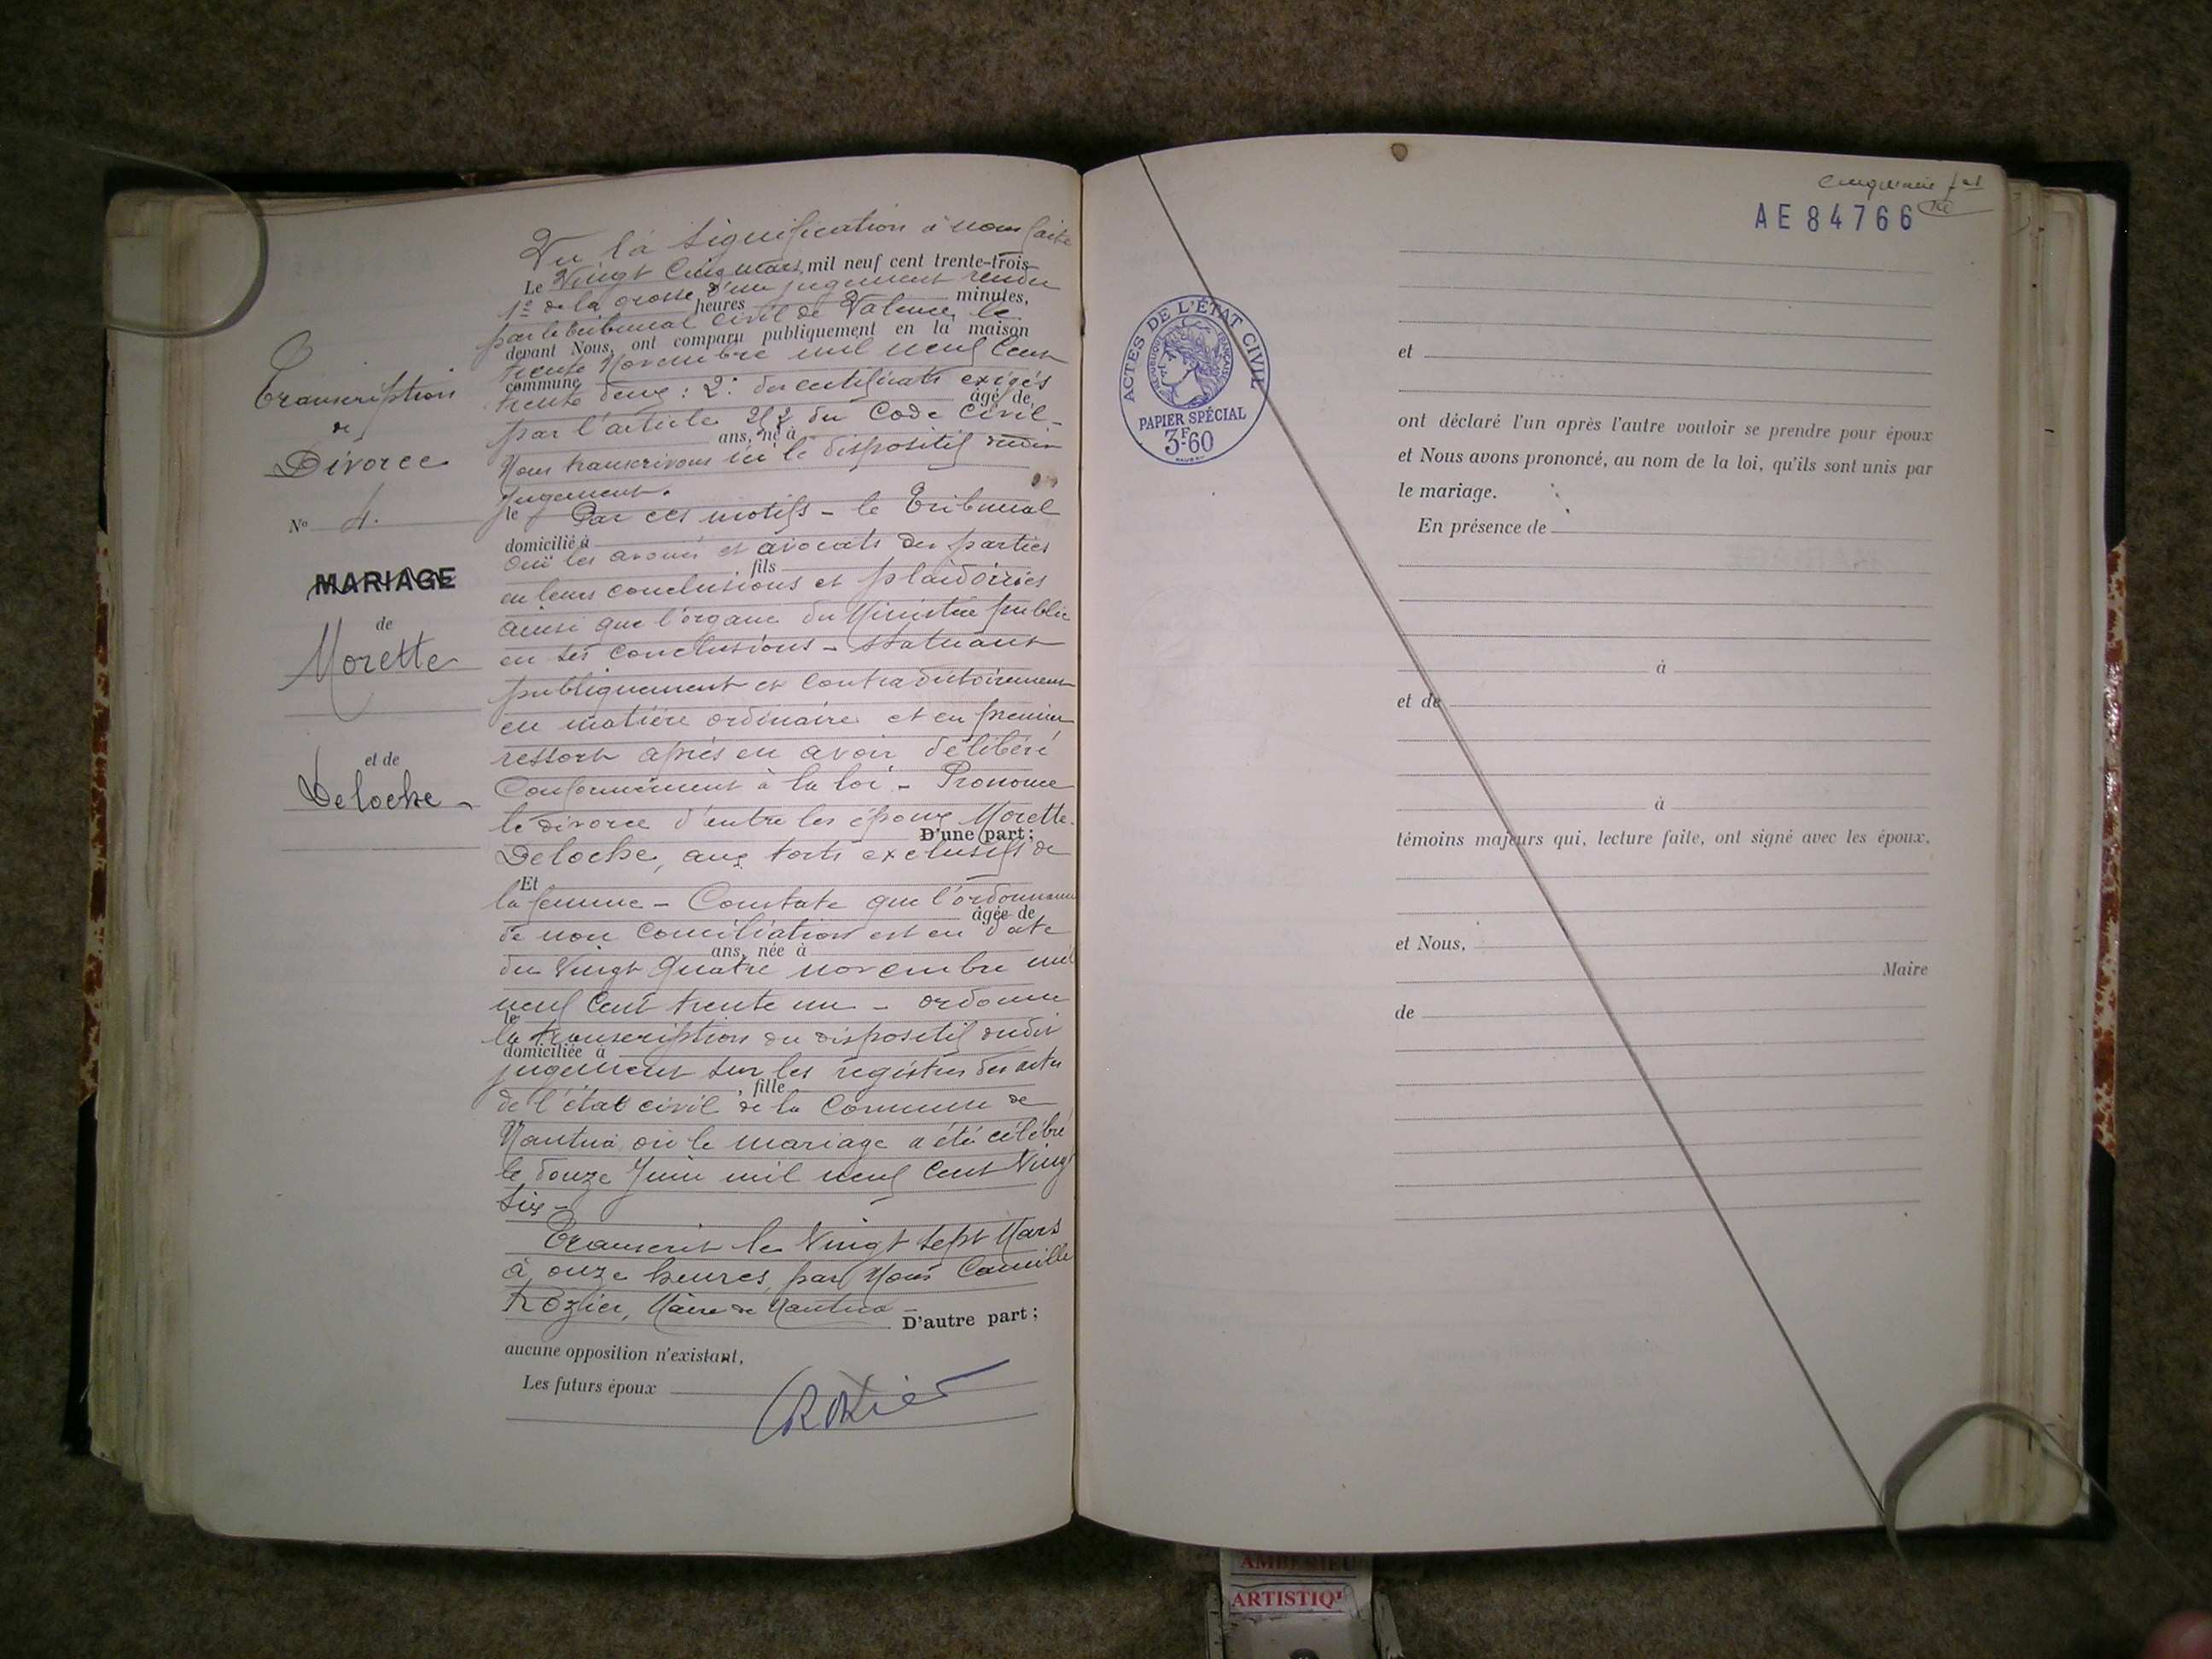 Transcription
de
Divorce
No 4.
MARIAGE
de
Morette
et de
Deloche
Vu la signification à nous faite
Le Vingt Cinq mars, mil neuf cent trente-trois
1º de la grosse d'un jugement rendu
heures minutes,
par le tribunal civil de Valence, le
devant Nous, ont comparu publiquement en la maison
trente Novembre mil neuf Cent
commune
trente deux : 2º des certificats exigés
âgé de
par l'article 252 du Code Civil -
ans, né à
Nous transcrivons ici le dispositif dudit
jugement.
le Par ces motifs - le Tribunal
domicilié à
Ouï les avoués et avocats des parties
fils
en leurs conclusions et plaidoiries
ainsi que l'organe du Ministère public
en ses conclusions - statuant
publiquement et contradictoirement
en matière ordinaire et en premier
ressort après en avoir délibéré
Conformément à la loi - Prononce
le divorce d'entre les époux Morette-
D'une part ;
Deloche, aux torts exclusifs de
Et
la femme - Constate que l'ordonnance
âgée de
de non conciliation est en date
ans, née à
du Vingt Quatre novembre mil
neuf Cent trente un - ordonne
le
la transcription du dispositif dudit
domiciliée à
jugement sur les registres des actes
fille
de l'état civil de la Commune de
Nantua, où le mariage a été célébré
le douze Juin mil neuf Cent Vingt
six -
Transcrit le Vingt sept Mars
à onze heures, par Nous Camille
Rozier, Maire de Nantua -
D'autre part ;
aucune opposition n'existant,
Les futurs époux
CRozier
AE 84766
ACTES DE L'ÉTAT CIVIL
RÉPUBLIQUE FRANÇAISE
PAPIER SPÉCIAL
3F60
et
ont déclaré l'un après l'autre vouloir se prendre pour époux
et Nous avons prononcé, au nom de la loi, qu'ils sont unis par
le mariage.
En présence de
à
et de
à
témoins majeurs qui, lecture faite, ont signé avec les époux.
et Nous,
Maire
de
ARTISTIQ